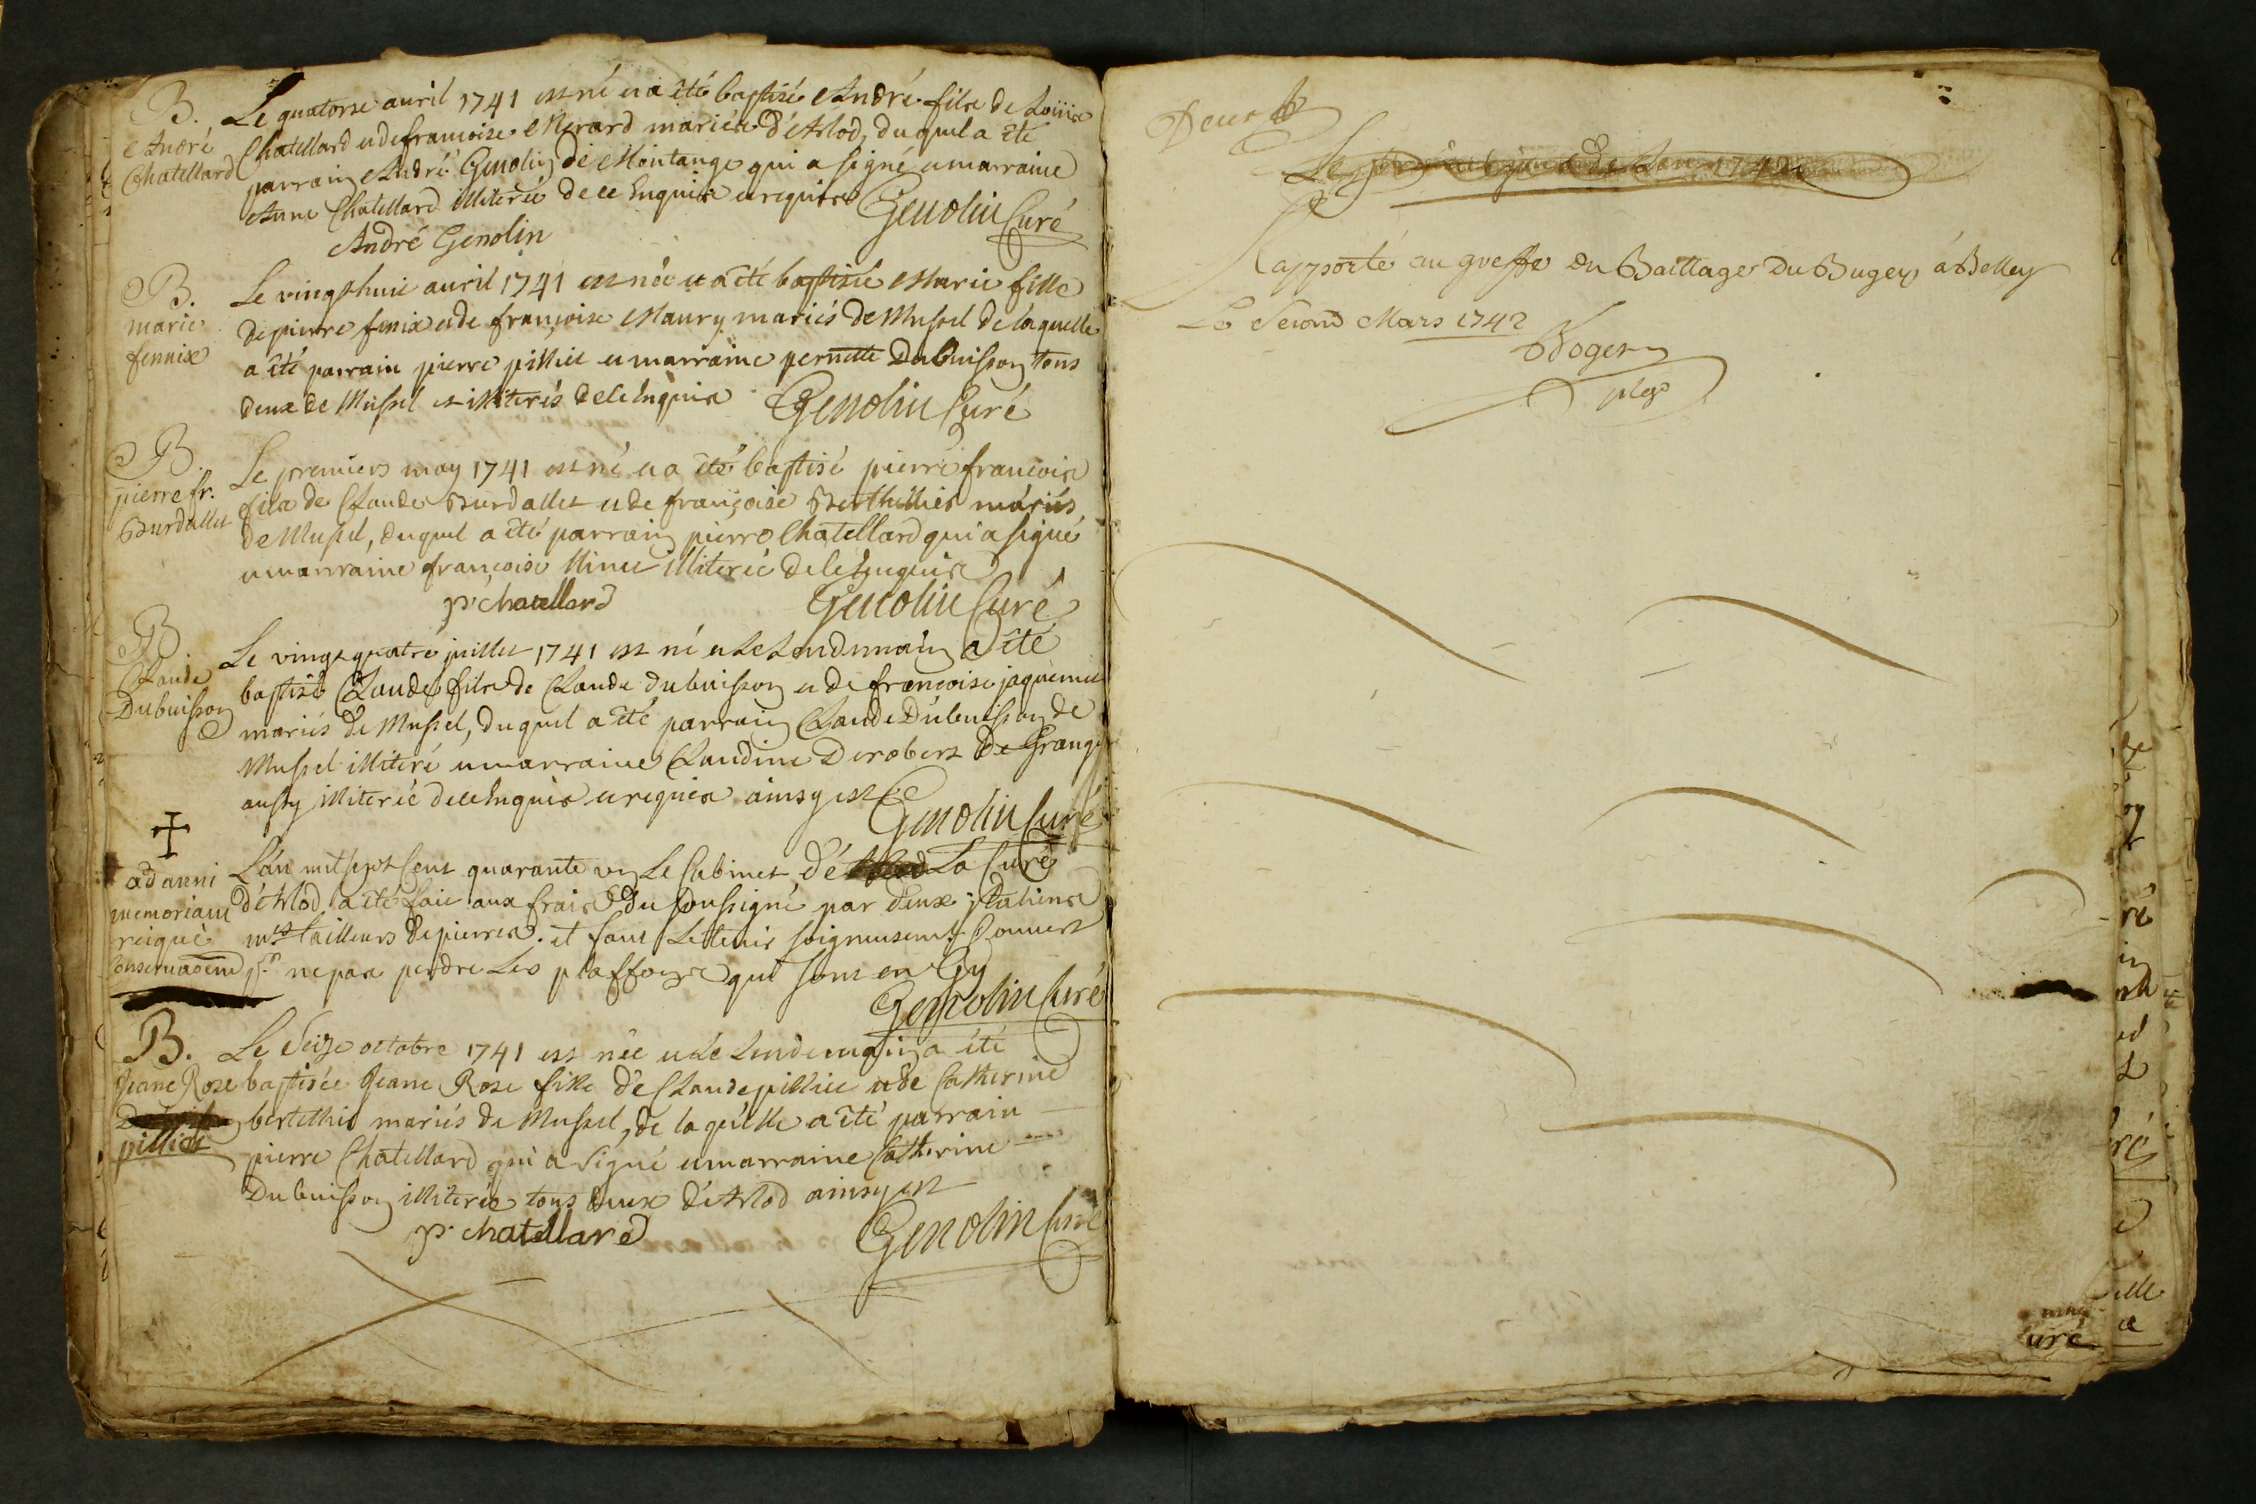 B. Le quatorse auril 1741 est né et a été baptisé André fils de Loüis
André Chatellard et de francoise Nerard mariés d'Arlod, duquel a été
Chatellard parrain André Genolin de Montange qui a signé et marraine
Anne Chatellard illiterée de ce Enquis et requise Genolin Curé
André Genolin
B. Le vingt huit auril 1741 est née et a été baptisée Marie fille
marie de pierre fenix et de françoise Maury mariés de Mussel de laquelle
fennix a été parrain pierre pilliet et marraine pernette Dubuisson tous
deux de Mussel et illiterés de ce Enquis Genolin Curé
B. Le premiers may 1741 est né et a été baptisé pierre francois
pierre fr. fils de Claude Burdallet et de françoise Berthillier mariés
Burdallet de Mussel, duquel a été parrain pierre Chatellard qui a signé
et marraine francoise illiterée de ce Enquis
pr chatellard Genolin Curé
B Le vingt quatre juillet 1741 est né et Le Lendemain a été
Claude baptisé Claude fils de Claude dubuisson et de francoise jaquemet
Dubuisson mariés de Mussel, duquel a été parrain Claude Dubuisson de
Mussel illiteré et marraine Claudine Derobert de Grange
aussy illiterée de ce Enquis et requis ainsy est
Genolin Curé
ad anni L'an mil sept Cent quarante un Le Cabinet de La Cure
memoriam d'Arlod a été fait aux frais du soussigné par deux italiens
reique mes tailleurs de pierres. et faut Le tenir soigneusement Couvert
conservadend pr ne pas perdre Les plaffons qui sont en Gy
Genolin Curé
B. Le Seize octobre 1741 est née et Le Lendemain a été
Jeane Rose baptisée Jeane Rose fille de Claude pilliet et de Catherine
bertellier mariés de Mussel, de laquelle a été parrain
pilliet pierre Chatellard qui a signé et marraine Catherine
Dubuisson illiterée tous deux d'Arlod ainsy est
pr chatellard Genolin Curé
Deux
1742
Rapporté au greffe du Baillage du Bugey à Belley
Le Second Mars 1742
uré